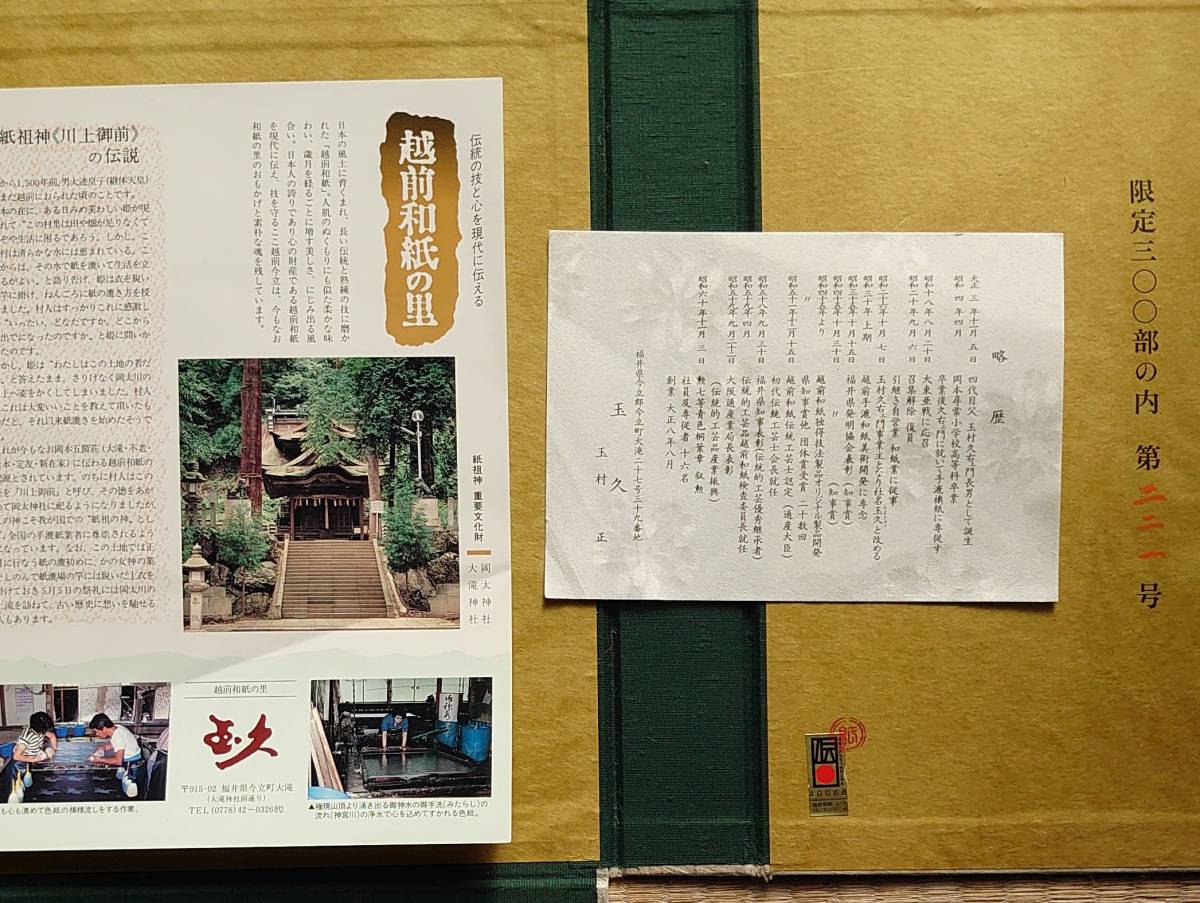 限定三〇〇部の内 第 二二一 号
略歴
大正三年十一月五日 四代目父 玉村久右ェ門長男として誕生
昭和四年四月 岡本尋常小学校高等科卒業
卒業後久右ェ門に就いて手漉襖紙に専従す
昭和十八年八月二十日 大東亜戦に応召
昭和二十年九月六日 召集解除 復員
引継ぎ自営業 和紙業に従事
昭和二十五年十月七日 玉村久右ェ門事業主となり社名玉久と改める
昭和三十年上期 越前手漉和紙美術開発に専念
昭和三十五年十月十五日 福井県発明協会表彰(知事賞)
昭和四十五年十月三十日 〃 (知事賞)
昭和四十五年より 越前和紙独得技法製品オリジナル製品開発
〃 県知事賞他 団体賞受賞 二十数回
昭和五十一年十二月十五日 越前和紙伝統工芸士認定(通産大臣)
初代伝統工芸士会長就任
昭和五十八年九月三十日 福井県知事表彰(伝統的工芸優秀継承者)
昭和五十九年四月 伝統的工芸品越前和紙検査委員長就任
昭和五十九年九月二十二日 大阪通産業局長表彰
(伝統的工芸品産業振興)
昭和六十年十一月三日 勲七等青色桐葉章 叙勲
社員及専従者 十六名
創業 大正八年八月
福井県今立郡今立町大滝二十七号三十九番地
玉久
玉村 正
伝統の技と心を現代に伝える
越前和紙の里
日本の風土に育くまれ、長い伝統と熟練の技に磨か
れた「越前和紙」。人肌のぬくもりにも似た柔かな味
わい、歳月を経るごとに増す美しさ、にじみ出る風
合い。日本人の誇りであり心の財産である越前和紙
を現代に伝え、技を守るここ越前今立は、今もなお
和紙の里のおもかげと素朴な魂を残しています。
紙祖神 重要文化財
岡太神社
大滝神社
紙祖神《川上御前》
の伝説
から1,500年前、男大迹皇子(継体天皇)
まだ越前におられた頃のことです。
本の在に、ある日みめ美わしい姫が現
れて“この村里は田や畑が足りなくて
ぞや生活に困るであろう。しかし、こ
村は清らかな水には恵まれている。こ
からは、その水で紙を漉いて生活を立
るがよい。と語り告げ、姫は衣を脱い
竿に掛け、ねんごろに紙の漉き方を授
ました。村人はすっかりこれに感激し
“いったい、どなたですか。どこから
出でになったのですか。と姫に問いか
たのです。
かし、姫は“わたしはこの土地の者だ
と答えたまま、さりげなく岡太川の
上へ姿をかくしてしまいました。村人
これは大変いいことを教えて頂いたも
だと、それ以来紙漉きを始めたそうで
れが今もなお岡本五箇荘(大滝・不老・
本・定友・新在家)に伝わる越前和紙の
源とされています。のちに村人はこの
を『川上御前』と呼び、その徳をあが
めて岡太神社に祀るようになりましたが、
この神こそ我が国での“紙の祖神。とし
、全国の手漉紙業者に尊崇されるよう
なっています。なお、この土地では正
に行なう紙の漉初めに、かの女神の業
そしのんで紙漉場の竿には脱いだ上衣を
掛けておき5月5日の祭礼には岡太川の
流を訪ねて、古い歴史に想いを馳せる
人もあります。
も心も清めて色紙の模様流しをする作業。
越前和紙の里
玉久
〒915-02 福井県今立町大滝
(大滝神社前通り)
TEL(0778)42-0326代
▲権現山頂より湧き出る御神水の御手洗(みたらし)の
流れ(神宮川)の浄水で心を込めてすかれる色紙。